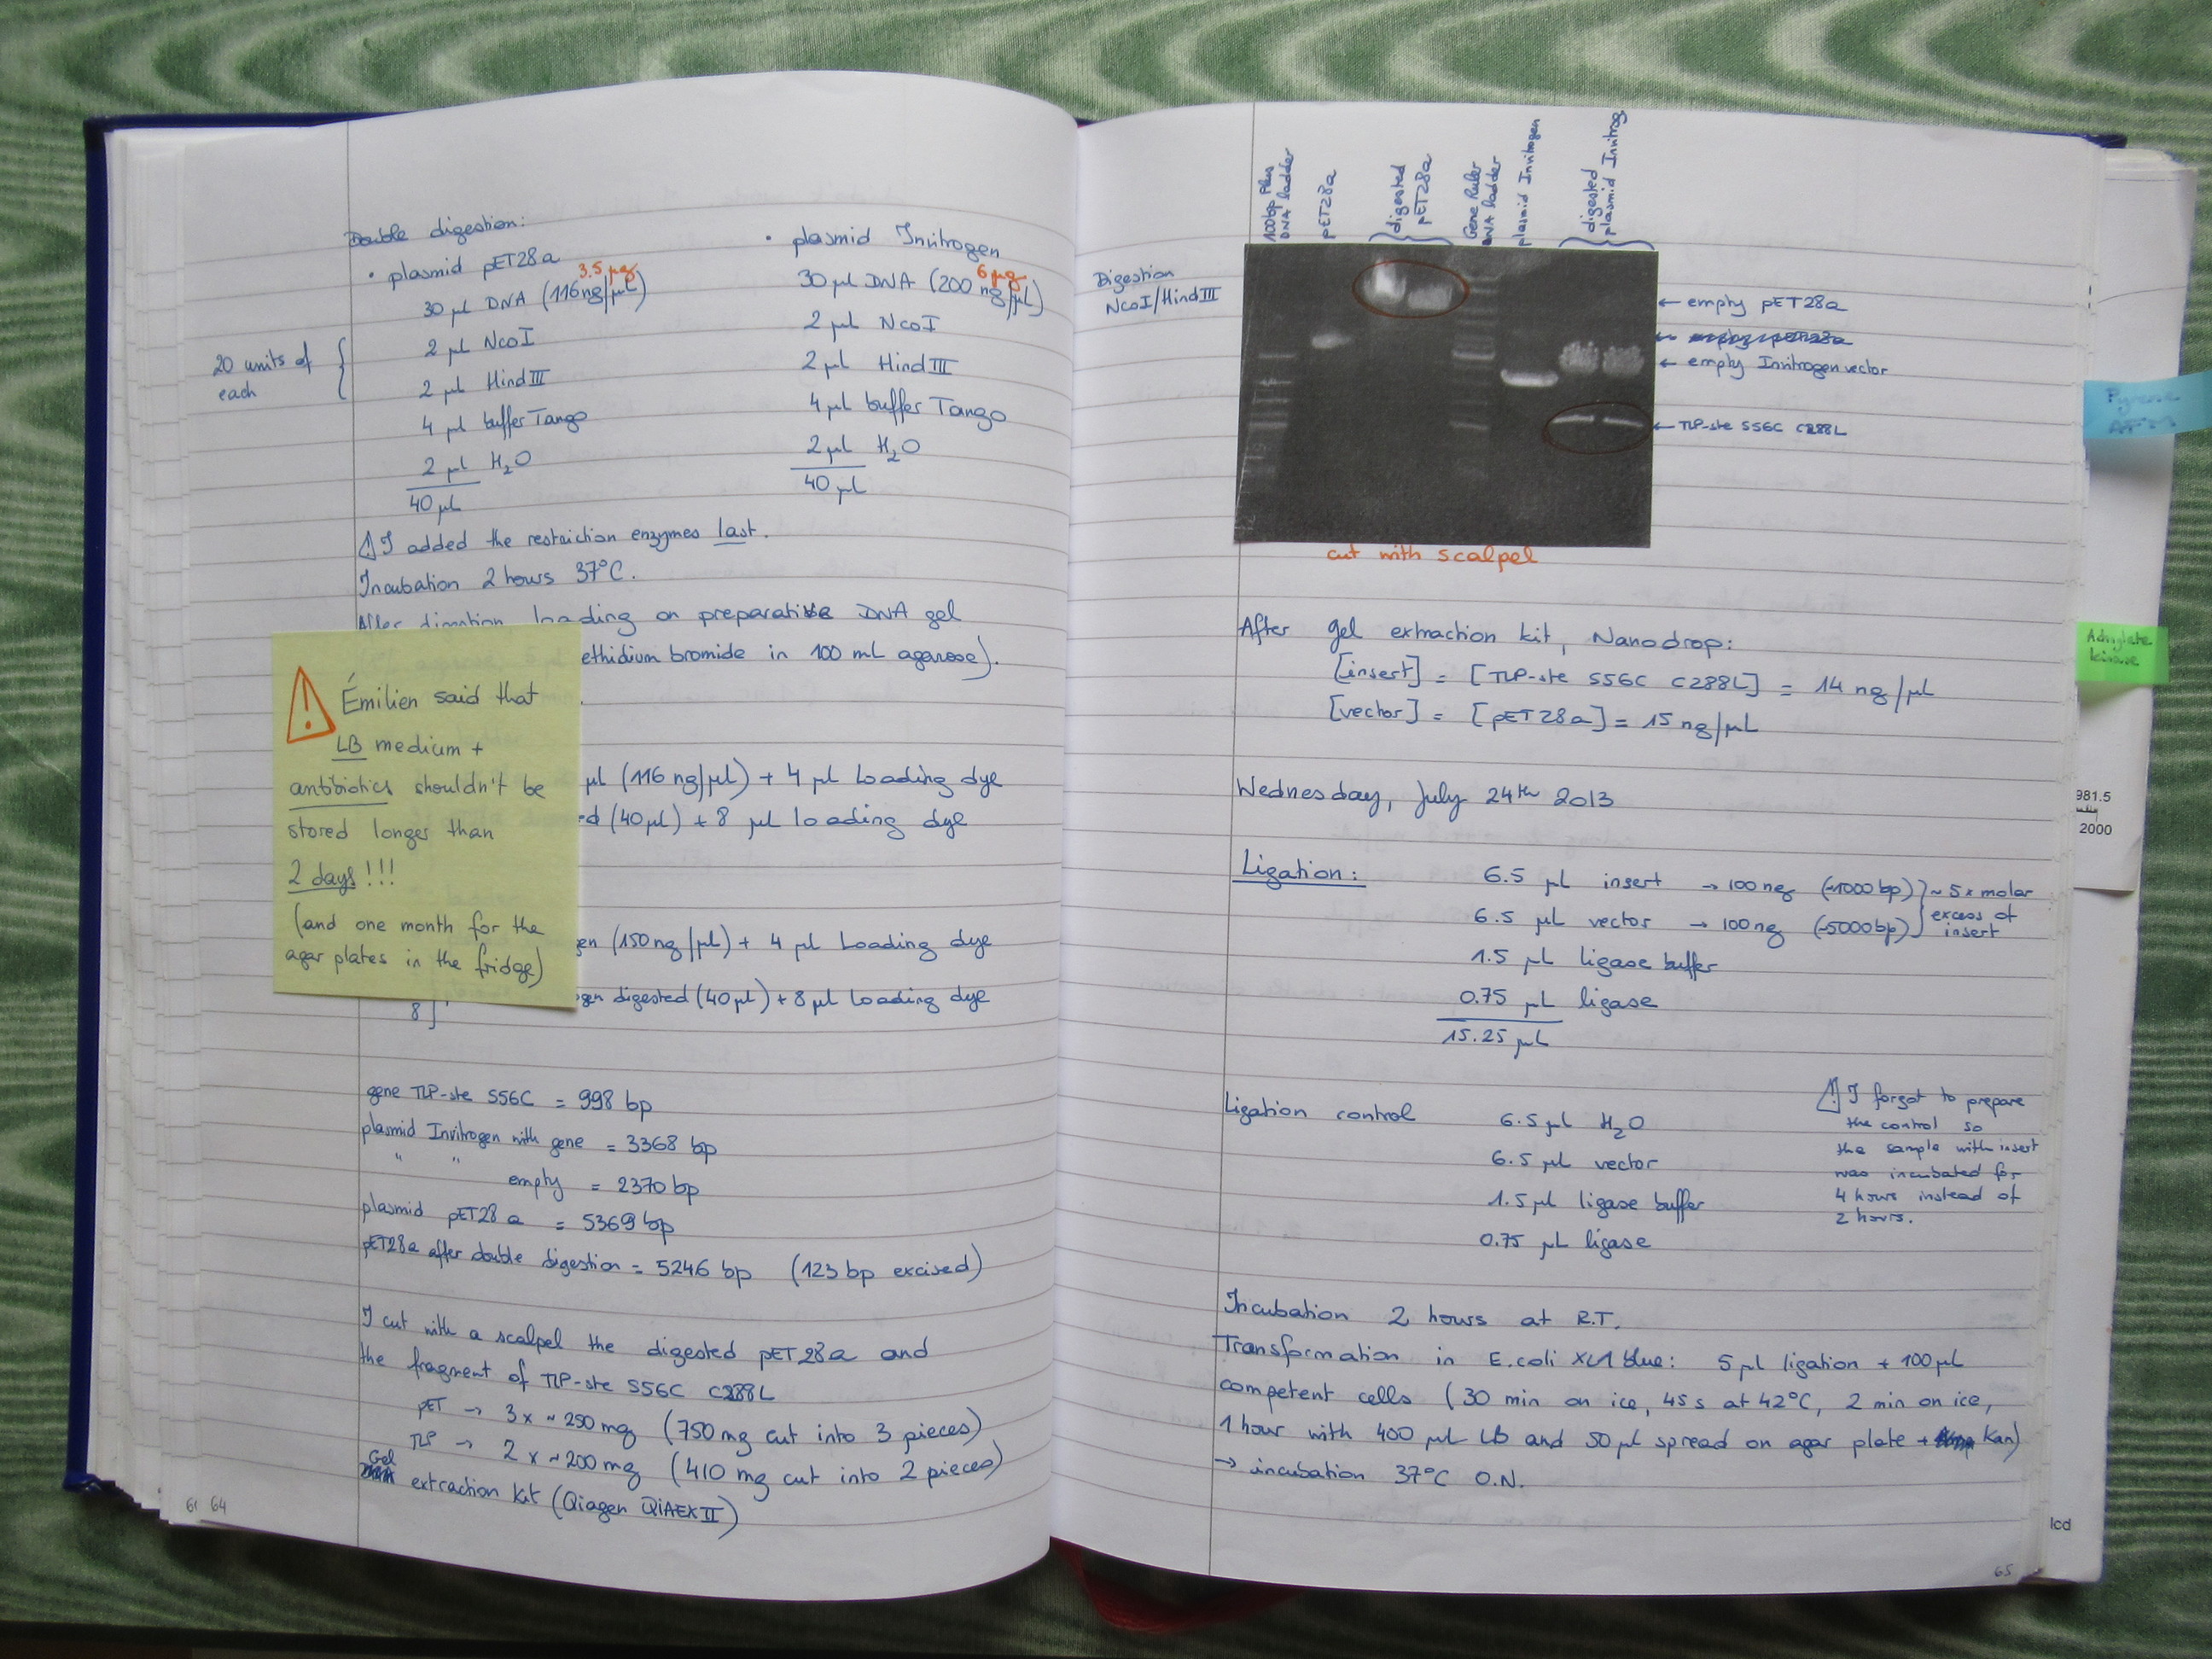 Double digestion:
• plasmid pET28a
3.5 µg
30 µl DNA (116ng/µl)
2 µl NcoI
2 µl HindIII
20 units of
each
4 µl buffer Tango
2 µl H2O
40 µl
• plasmid Invitrogen
6 µg
30 µl DNA (200 ng/µl)
2 µl NcoI
2 µl HindIII
4 µl buffer Tango
2 µl H2O
40 µl
⚠ I added the restriction enzymes last.
Incubation 2 hours 37°C.
After digestion loading on preparative DNA gel
ethidium bromide in 100 mL agarose).
µl (116 ng/µl) + 4 µl loading dye
ed (40 µl) + 8 µl loading dye
gen (150 ng/µl) + 4 µl loading dye
ogen digested (40 µl) + 8 µl loading dye
8
⚠ Émilien said that
LB medium +
antibiotics shouldn't be
stored longer than
2 days!!!
(and one month for the
agar plates in the fridge)
gene TLP-ste S56C = 998 bp
plasmid Invitrogen with gene = 3368 bp
" " empty = 2370 bp
plasmid pET28a = 5369 bp
pET28a after double digestion = 5246 bp (123 bp excised)
I cut with a scalpel the digested pET28a and
the fragment of TLP-ste S56C C288L
pET → 3 x ~ 250 mg (750 mg cut into 3 pieces)
TLP → 2 x ~ 200 mg (410 mg cut into 2 pieces)
Gel extraction kit (Qiagen QIAEX II)
64
100bp Plus
DNA ladder
pET28a
digested
pET28a
Gene Ruler
DNA ladder
plasmid Invitrogen
digested
plasmid Invitrog
Digestion
NcoI/HindIII
← empty pET28a
← empty Invitrogen vector
← TLP-ste S56C C288L
cut with scalpel
After gel extraction kit, Nanodrop:
[insert] = [TLP-ste S56C C288L] = 14 ng/µL
[vector] = [pET28a] = 15 ng/µL
Wednesday, July 24th 2013
Ligation:
6.5 µl insert → 100 ng (~1000 bp)
6.5 µl vector → 100 ng (~5000 bp)
~ 5x molar
excess of
insert
1.5 µl ligase buffer
0.75 µl ligase
15.25 µL
Ligation control
6.5 µl H2O
6.5 µl vector
1.5 µl ligase buffer
0.75 µL ligase
⚠ I forgot to prepare
the control so
the sample with insert
was incubated for
4 hours instead of
2 hours.
Incubation 2 hours at R.T.
Transformation in E.coli XL1 blue: 5 µl ligation + 100 µl
competent cells (30 min on ice, 45 s at 42°C, 2 min on ice,
1 hour with 400 µL LB and 50 µl spread on agar plate + Kan)
→ incubation 37°C O.N.
65
Adenylate
kinase
981.5
2000
lcd